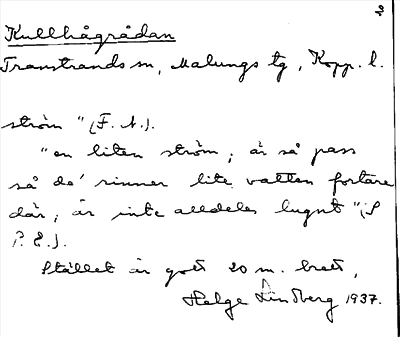 2
Kullhågrådan
Transtrands sn, Malungs tg, Kopp. l.
ström" (F. A.).
"en liten ström; är så pass
så de' rinner lite vatten fortare
där, är inte alldeles lugnt" (S
P. E.).
Stället är gott 20 m. brett,
Helge Lindberg 1937.